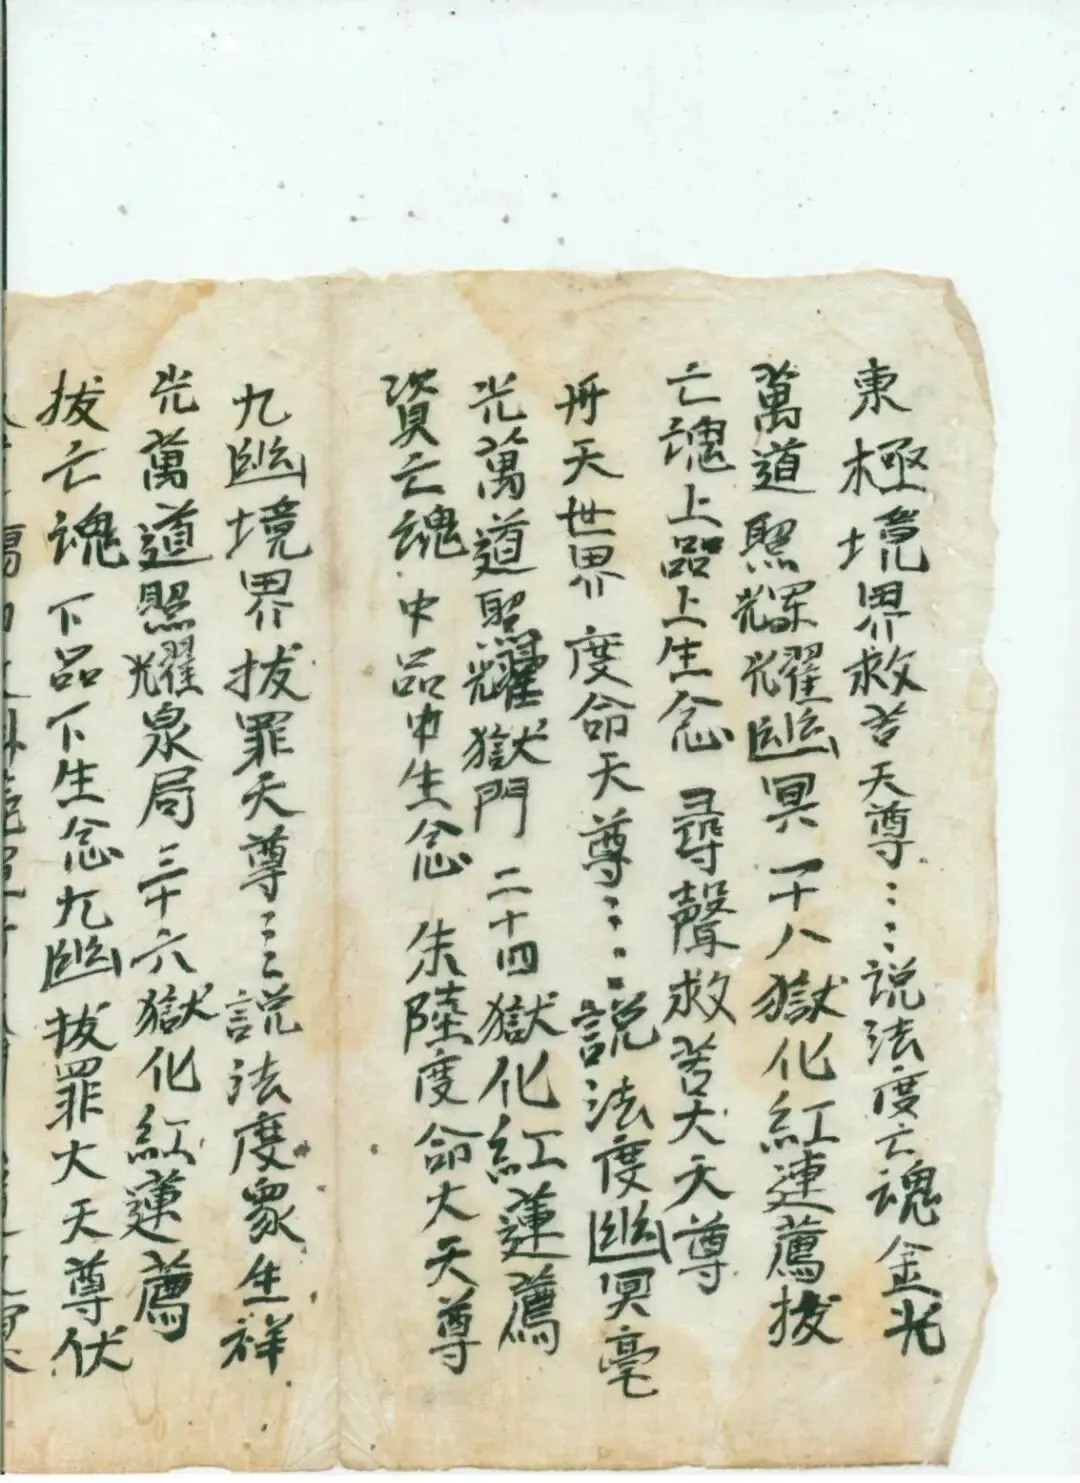 東極境界救苦天尊⋮⋮説法度亡魂金光
萬道照耀幽冥一十八獄化紅連薦拔
亡魂上品上生念 尋聲救苦大天尊
冊天世界度命天尊⋮⋮説法度幽冥毫
光萬道照耀獄門二十四獄化紅蓮薦
資亡魂中品中生念 朱陸度命大天尊
九幽境界拔罪天尊⋮⋮説法度衆生祥
光萬道照耀泉局三十六獄化紅蓮薦
拔亡魂下品下生念九幽拔罪大天尊伏